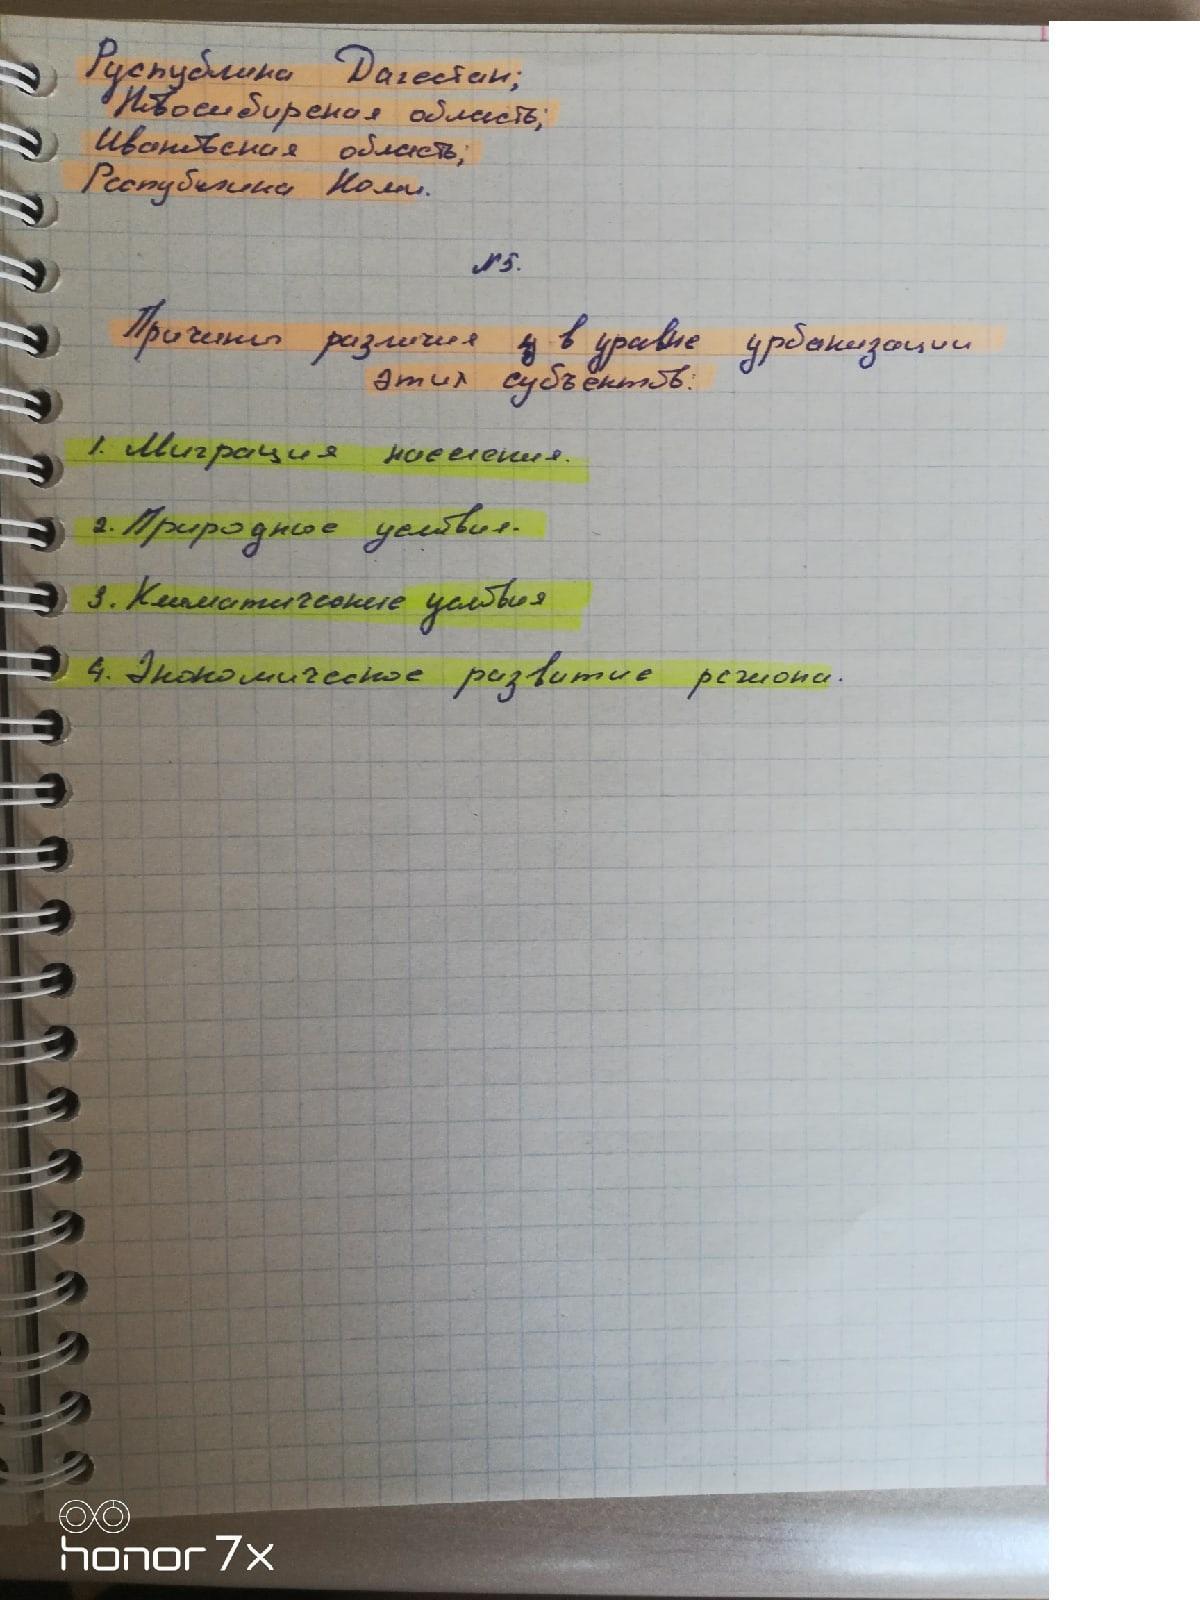 Руспублика Дагестан;
Новосибирская область;
Ивановская область;
Республика Коми.
№5.
Причины различия в уравне урбанизации
этих субъектов:
1. Миграция населения.
2. Природные условия.
3. Климатические условия
4. Экономическое развитие региона.
honor 7x